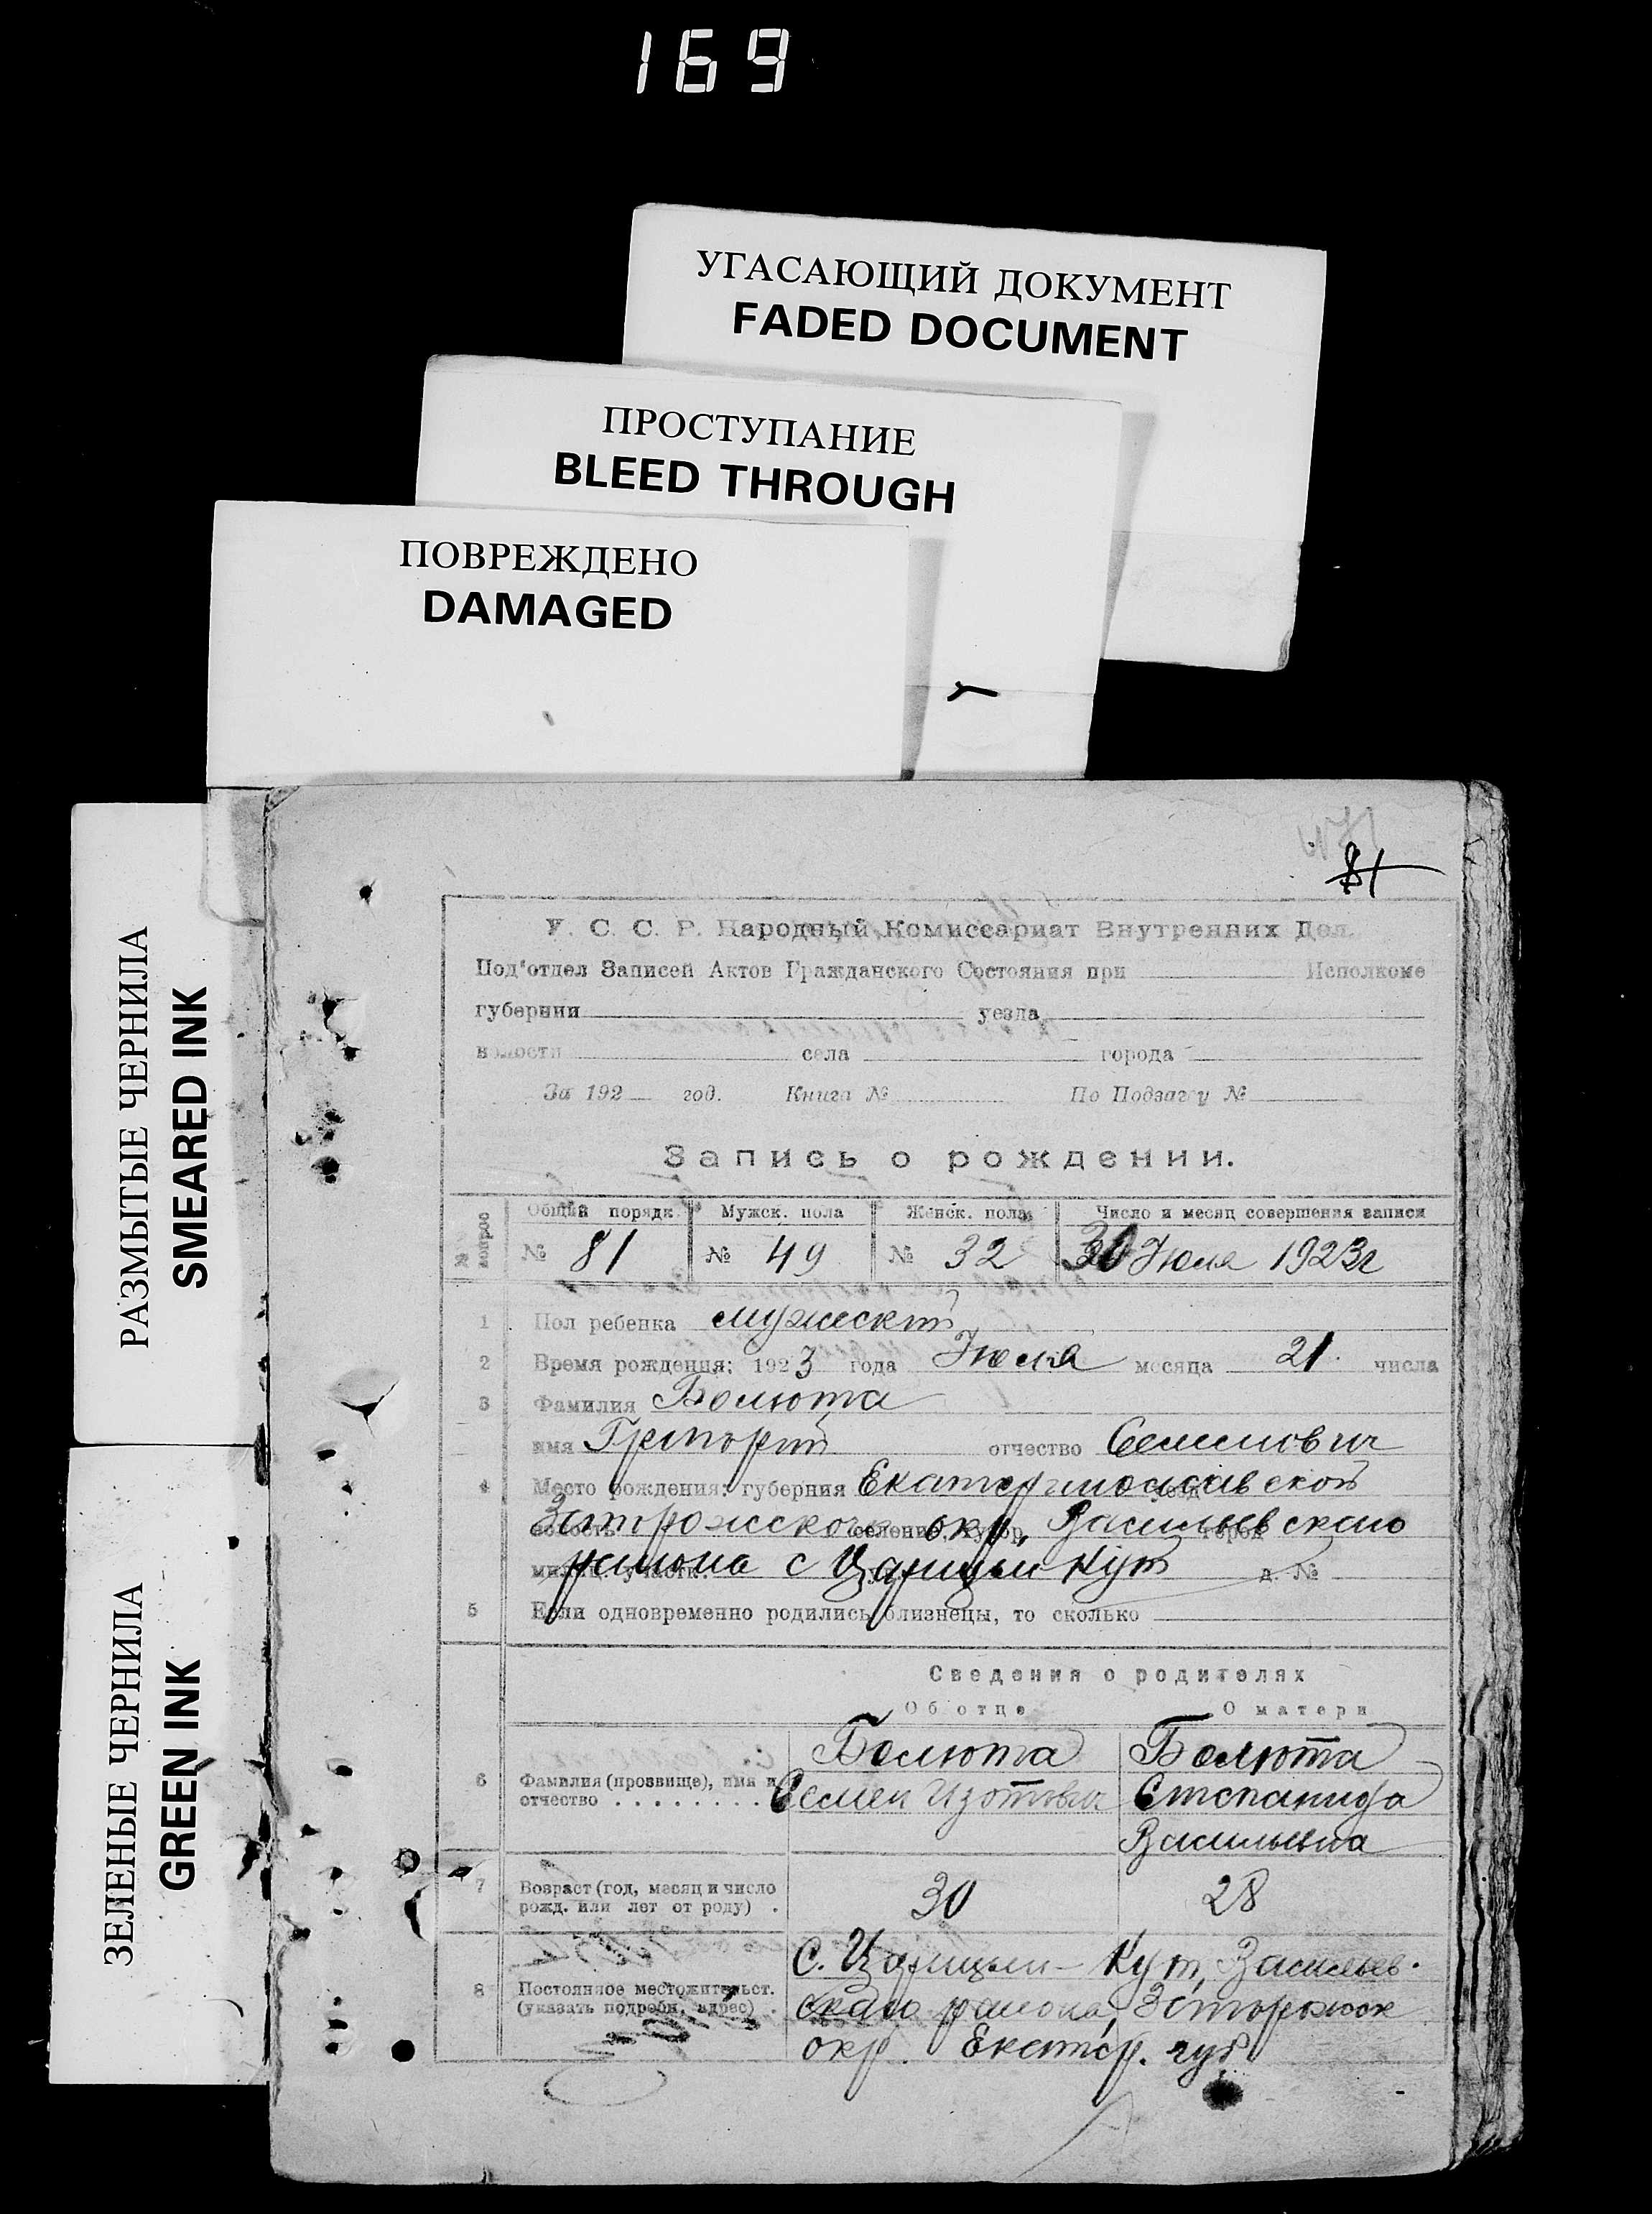 169
УГАСАЮЩИЙ ДОКУМЕНТ
FADED DOCUMENT
ПРОСТУПАНИЕ
BLEED THROUGH
ПОВРЕЖДЕНО
DAMAGED
РАЗМЫТЫЕ ЧЕРНИЛА
SMEARED INK
ЗЕЛЕНЫЕ ЧЕРНИЛА
GREEN INK
81
У. С. С. Р. Народный Комиссариат Внутренних Дел.
Под'отдел Записей Актов Гражданского Состояния при Исполкоме
губернии уезда
волости села города
За 192 год. Книга № По Подзагсу №
Запись о рождении.
№ вопрос Общий порядк. Мужск. пола Женск. пола Число и месяц совершения записи
№ 81 № 49 № 32 30 Июля 1923г
1 Пол ребенка мужской
2 Время рождения: 1923 года Июля месяца 21 числа
3 Фамилия Белюта
имя Григорий отчество Семенович
4 Место рождения: губерния Екатеринославской
волость Запорожского селение, хутор, окр, Васильевского город
милиц. участк. района с Царицын Кут д. №
5 Если одновременно родились близнецы, то сколько
Сведения о родителях
Об отце О матери
Белюта Белюта
6 Фамилия (прозвище), имя и отчество Семен Изотович Степанида
Васильевна
7 Возраст (год, месяц и число рожд. или лет от роду) 30 28
С. Царицын-Кут, Васильев-
8 Постоянное местожительст. (указать подробн. адрес) ского района, Запорожск
окр. Екатер. губ